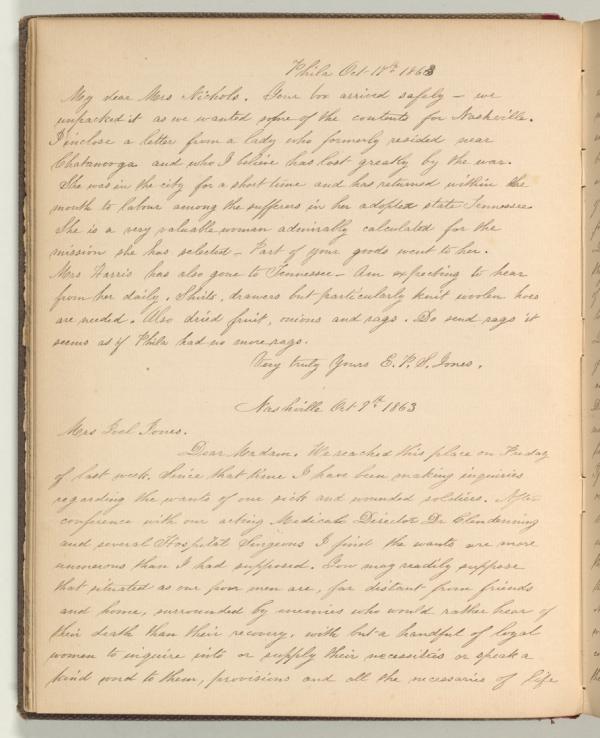 Phila Oct 17th 1863
My dear Mrs Nichols. Your box arrived safely - we
unpacked it as we wanted some of the contents for Nashville.
I inclose a letter from a lady who formerly resided near
Chatanooga and who I believe has lost greatly by the war.
She was in the city for a short time and has returned within the
month to labour among the sufferers in her adopted state Tennessee
She is a very valuable woman admirably calculated for the
mission she has selected - Part of your goods went to her.
Mrs Harris has also gone to Tennessee - Am expecting to hear
from her daily. Shirts, drawers but particularly knit woolen hoes
are needed. Also dried fruit, onions and rags. Do send rags it
seems as if Phila had no more rags.
Very truly Yours E. P. S. Jones.
Nashville Oct 9th 1863
Mrs Joel Jones.
Dear Madam. We reached this place on Friday
of last week. Since that time I have been making inquiries
regarding the wants of our sick and wounded soldiers. After
conference with our acting Medical Director Dr Clendenning
and several Hospital Surgeons I find the wants are more
numerous than I had supposed. You may readily suppose
that situated as our poor men are, far distant from friends
and home, surrounded by enemies who would rather hear of
their death than their recovery, with but a handful of loyal
women to inquire into or supply their necessities or speak a
kind word to them, provisions and all the necessaries of life